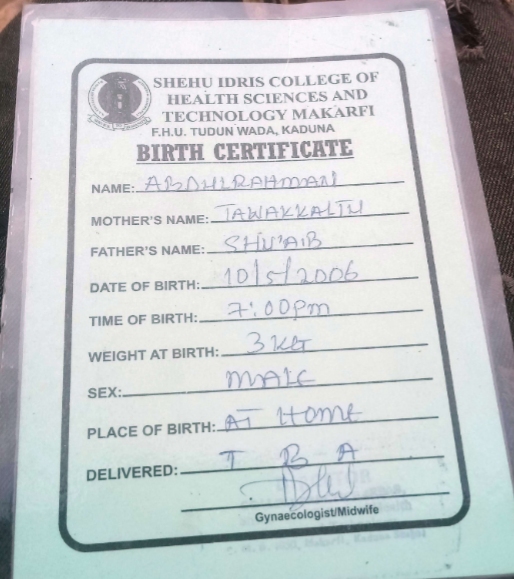 SHEHU IDRIS COLLEGE OF
HEALTH SCIENCES AND
TECHNOLOGY MAKARFI
F.H.U. TUDUN WADA, KADUNA
BIRTH CERTIFICATE
NAME: ABDULRAHMAN
MOTHER'S NAME: TAWAKKALTU
FATHER'S NAME: SHU'AIB
DATE OF BIRTH: 10/5/2006
TIME OF BIRTH: 7:00pm
WEIGHT AT BIRTH: 3KG
SEX: MALE
PLACE OF BIRTH: AT HOME
DELIVERED: T B A
Gynaecologist/Midwife